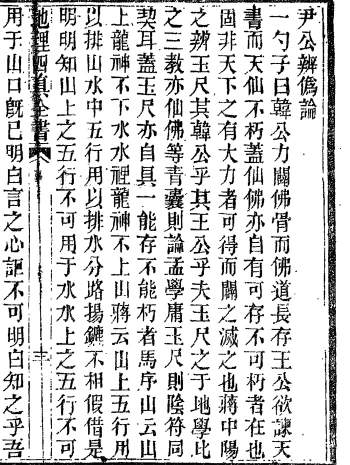 尹公辨僞論
一勺子曰韓公力闢佛骨而佛道長存王公欲諫天
書而天仙不朽蓋仙佛亦自有可存不可朽者在也
固非天下之有大力者可得而闢之滅之也蔣中陽
之辨玉尺其韓公乎其王公乎夫玉尺之于地學比
之三教亦仙佛等青囊則論孟學庸玉尺則陰符同
契耳蓋玉尺亦自具一能存不能朽者馬序山云山
上龍神不下水水裡龍神不上山蔣云山上五行用
以排山水中五行用以排水分路揚鑣不相假借是
明明知山上之五行不可用于水水上之五行不可
地理四貞全書
用于山口旣已明白言之心詎不可明白知之乎吾